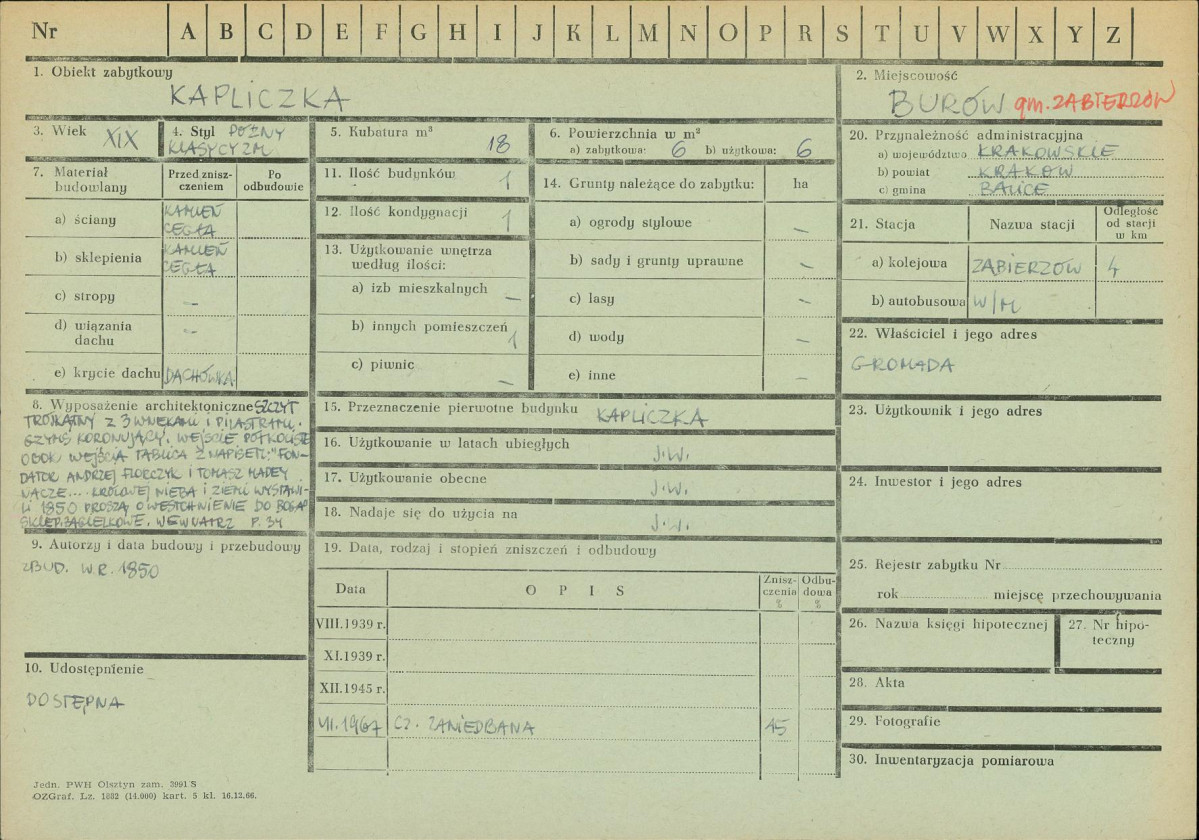 Nr A B C D E F G H I J K L M N O P R S T U V W X Y Z
1. Obiekt zabytkowy
KAPLICZKA
2. Miejscowość
BURÓW gm. ZABIERZÓW
3. Wiek XIX
4. Styl PÓŹNY
KLASYCYZM
5. Kubatura m³ 18
6. Powierzchnia w m²
a) zabytkowa: 6 b) użytkowa: 6
7. Materiał
budowlany
Przed znisz-
czeniem
Po
odbudowie
a) ściany KAMIEŃ
CEGŁA
b) sklepienia KAMIEŃ
CEGŁA
c) stropy –
d) wiązania
dachu –
e) krycie dachu DACHÓWKA
8. Wyposażenie architektoniczne SZCZYT
TRÓJKĄTNY Z 3 WNĘKAMI I PILASTRAMI.
GZYMS KORONUJĄCY. WEJŚCIE PÓŁKOLISTE
OBOK WEJŚCIA TABLICA Z NAPISEM: "FON-
DATOR ANDRZEJ FLORCZYK I TOMASZ MADEY
WACZE... KRÓLOWEJ NIEBA I ZIEMI WYSTAWI-
LI 1850 PROSZĄ O WESTCHNIENIE DO BOGA"
SKLEP. ŻAGIELKOWE. WEWNĄTRZ P. 34
9. Autorzy i data budowy i przebudowy
ZBUD. W R. 1850
10. Udostępnienie
DOSTĘPNA
11. Ilość budynków 1
12. Ilość kondygnacji 1
13. Użytkowanie wnętrza
według ilości:
a) izb mieszkalnych –
b) innych pomieszczeń 1
c) piwnic –
14. Grunty należące do zabytku: ha
a) ogrody stylowe –
b) sady i grunty uprawne –
c) lasy –
d) wody –
e) inne –
15. Przeznaczenie pierwotne budynku KAPLICZKA
16. Użytkowanie w latach ubiegłych J.W.
17. Użytkowanie obecne J.W.
18. Nadaje się do użycia na J.W.
19. Data, rodzaj i stopień zniszczeń i odbudowy
Data OPIS Znisz-
czenia
%
Odbu-
dowa
%
VIII.1939 r.
XI.1939 r.
XII.1945 r.
VII.1967 CZ. ZANIEDBANA 15
20. Przynależność administracyjna
a) województwo KRAKOWSKIE
b) powiat KRAKÓW
c) gmina BALICE
21. Stacja Nazwa stacji Odległość
od stacji
w km
a) kolejowa ZABIERZÓW 4
b) autobusowa W/M
22. Właściciel i jego adres
GROMADA
23. Użytkownik i jego adres
24. Inwestor i jego adres
25. Rejestr zabytku Nr
rok miejsce przechowywania
26. Nazwa księgi hipotecznej
27. Nr hipo-
teczny
28. Akta
29. Fotografie
30. Inwentaryzacja pomiarowa
Jedn. PWH Olsztyn zam. 3991 S
OZGraf. Lz. 1882 (14.000) kart. 5 kl. 16.12.66.